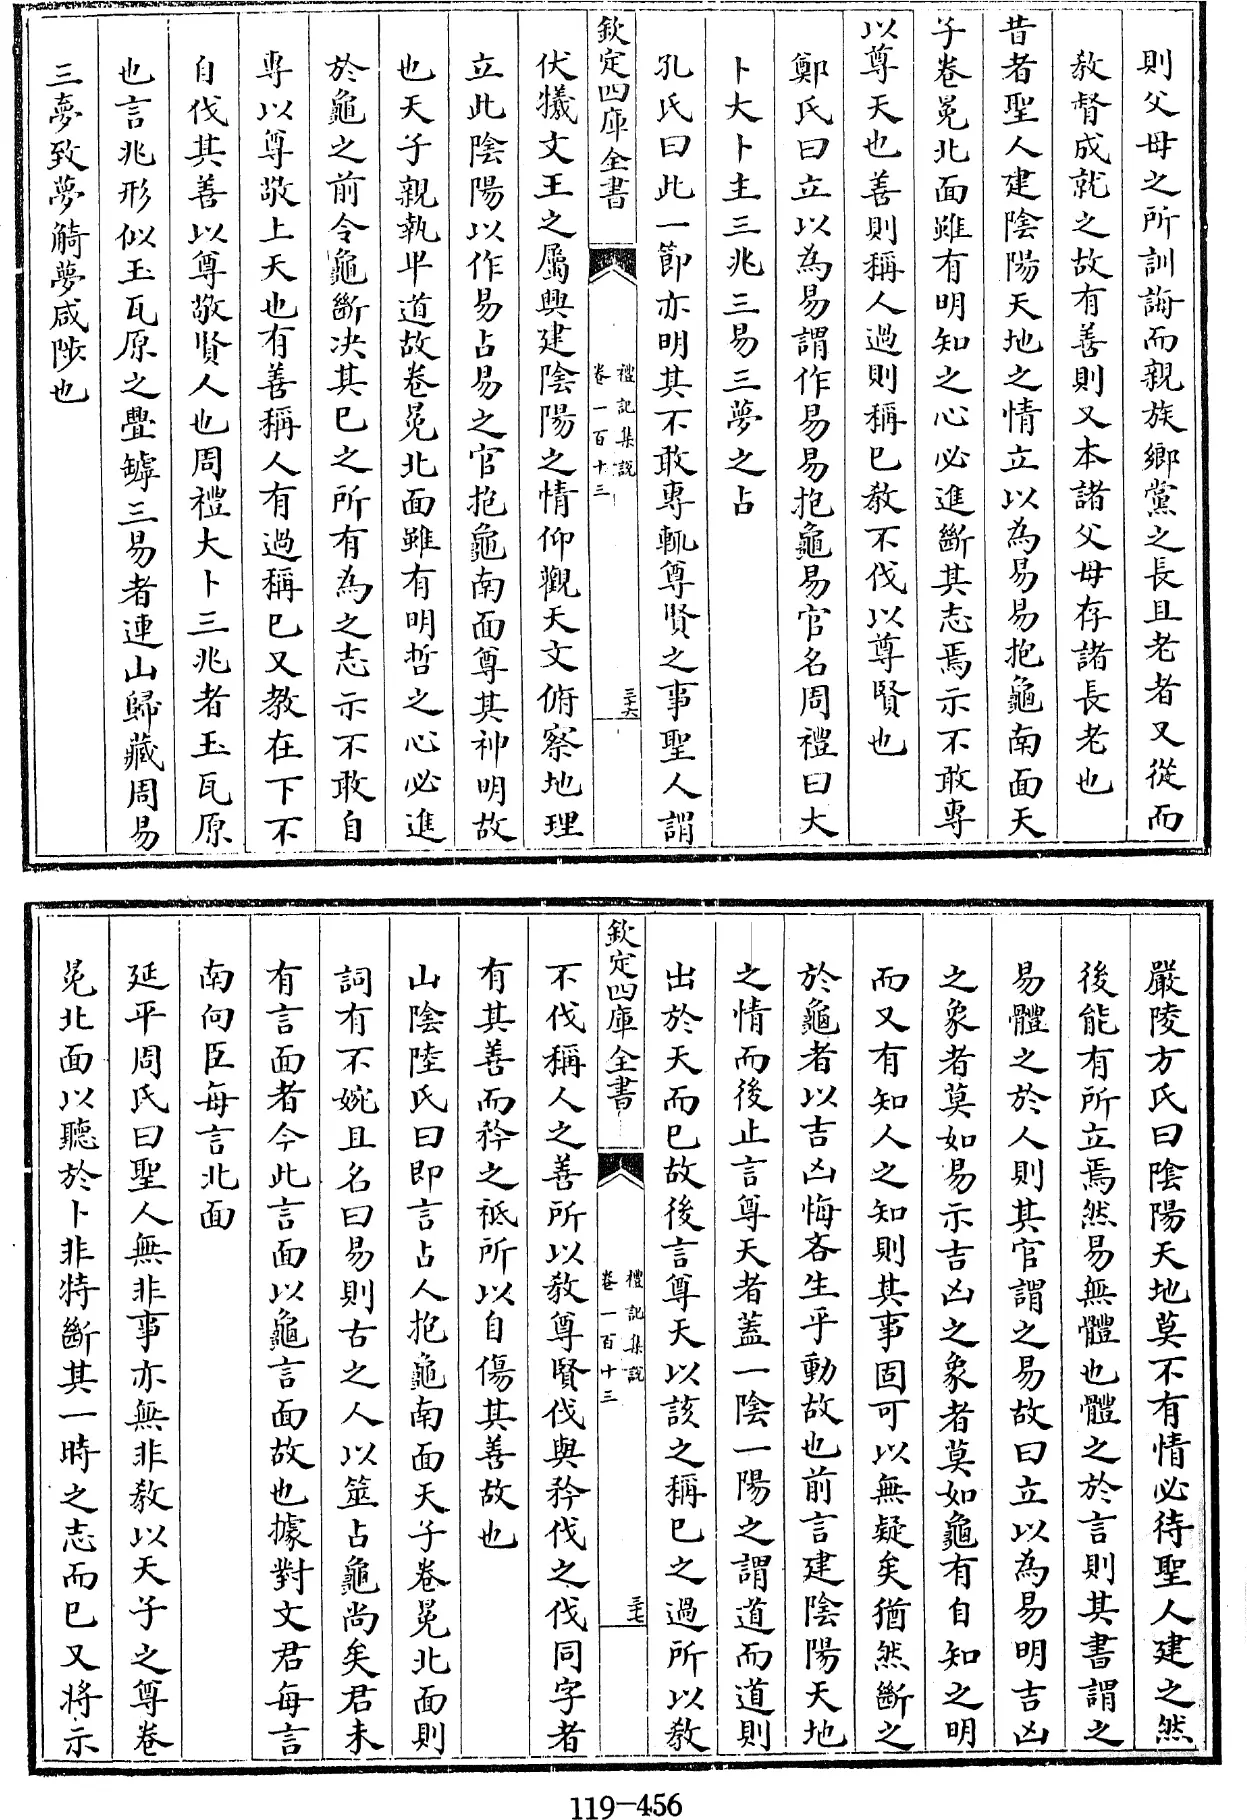 則父母之所訓誨而親族鄉黨之長且老者又從而
教督成就之故有善則又本諸父母存諸長老也
昔者聖人建陰陽天地之情立以為易易抱龜南面天
子卷冕北面雖有明知之心必進斷其志焉示不敢專
以尊天也善則稱人過則稱已教不伐以尊賢也
鄭氏曰立以為易謂作易易抱龜易官名周禮曰大
卜大卜主三兆三易三夢之占
孔氏曰此一節亦明其不敢專輒尊賢之事聖人謂
欽定四庫全書
禮記集說
卷一百十三
三十六
伏犧文王之屬興建陰陽之情仰觀天文俯察地理
立此陰陽以作易占易之官抱龜南面尊其神明故
也天子親執卑道故卷冕北面雖有明哲之心必進
於龜之前令龜斷決其已之所有為之志示不敢自
專以尊敬上天也有善稱人有過稱已又教在下不
自伐其善以尊敬賢人也周禮大卜三兆者玉瓦原
也言兆形似玉瓦原之璺罅三易者連山歸藏周易
三夢致夢觭夢咸陟也
嚴陵方氏曰陰陽天地莫不有情必待聖人建之然
後能有所立焉然易無體也體之於言則其書謂之
易體之於人則其官謂之易故曰立以為易明吉凶
之象者莫如易示吉凶之象者莫如龜有自知之明
而又有知人之知則其事固可以無疑矣猶然斷之
於龜者以吉凶悔吝生乎動故也前言建陰陽天地
之情而後止言尊天者蓋一陰一陽之謂道而道則
出於天而已故後言尊天以該之稱已之過所以教
欽定四庫全書
禮記集說
卷一百十三
三十七
不伐稱人之善所以教尊賢伐與矜伐之伐同字者
有其善而矜之祗所以自傷其善故也
山陰陸氏曰即言占人抱龜南面天子卷冕北面則
詞有不婉且名曰易則古之人以筮占龜尚矣君未
有言面者今此言面以龜言面故也據對文君每言
南向臣每言北面
延平周氏曰聖人無非事亦無非教以天子之尊卷
冕北面以聽於卜非特斷其一時之志而已又將示
119-456